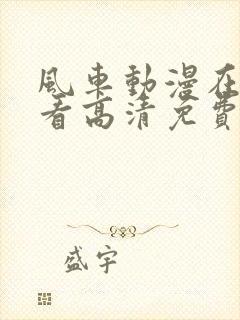 風車動漫在
看高清免費
盛宇